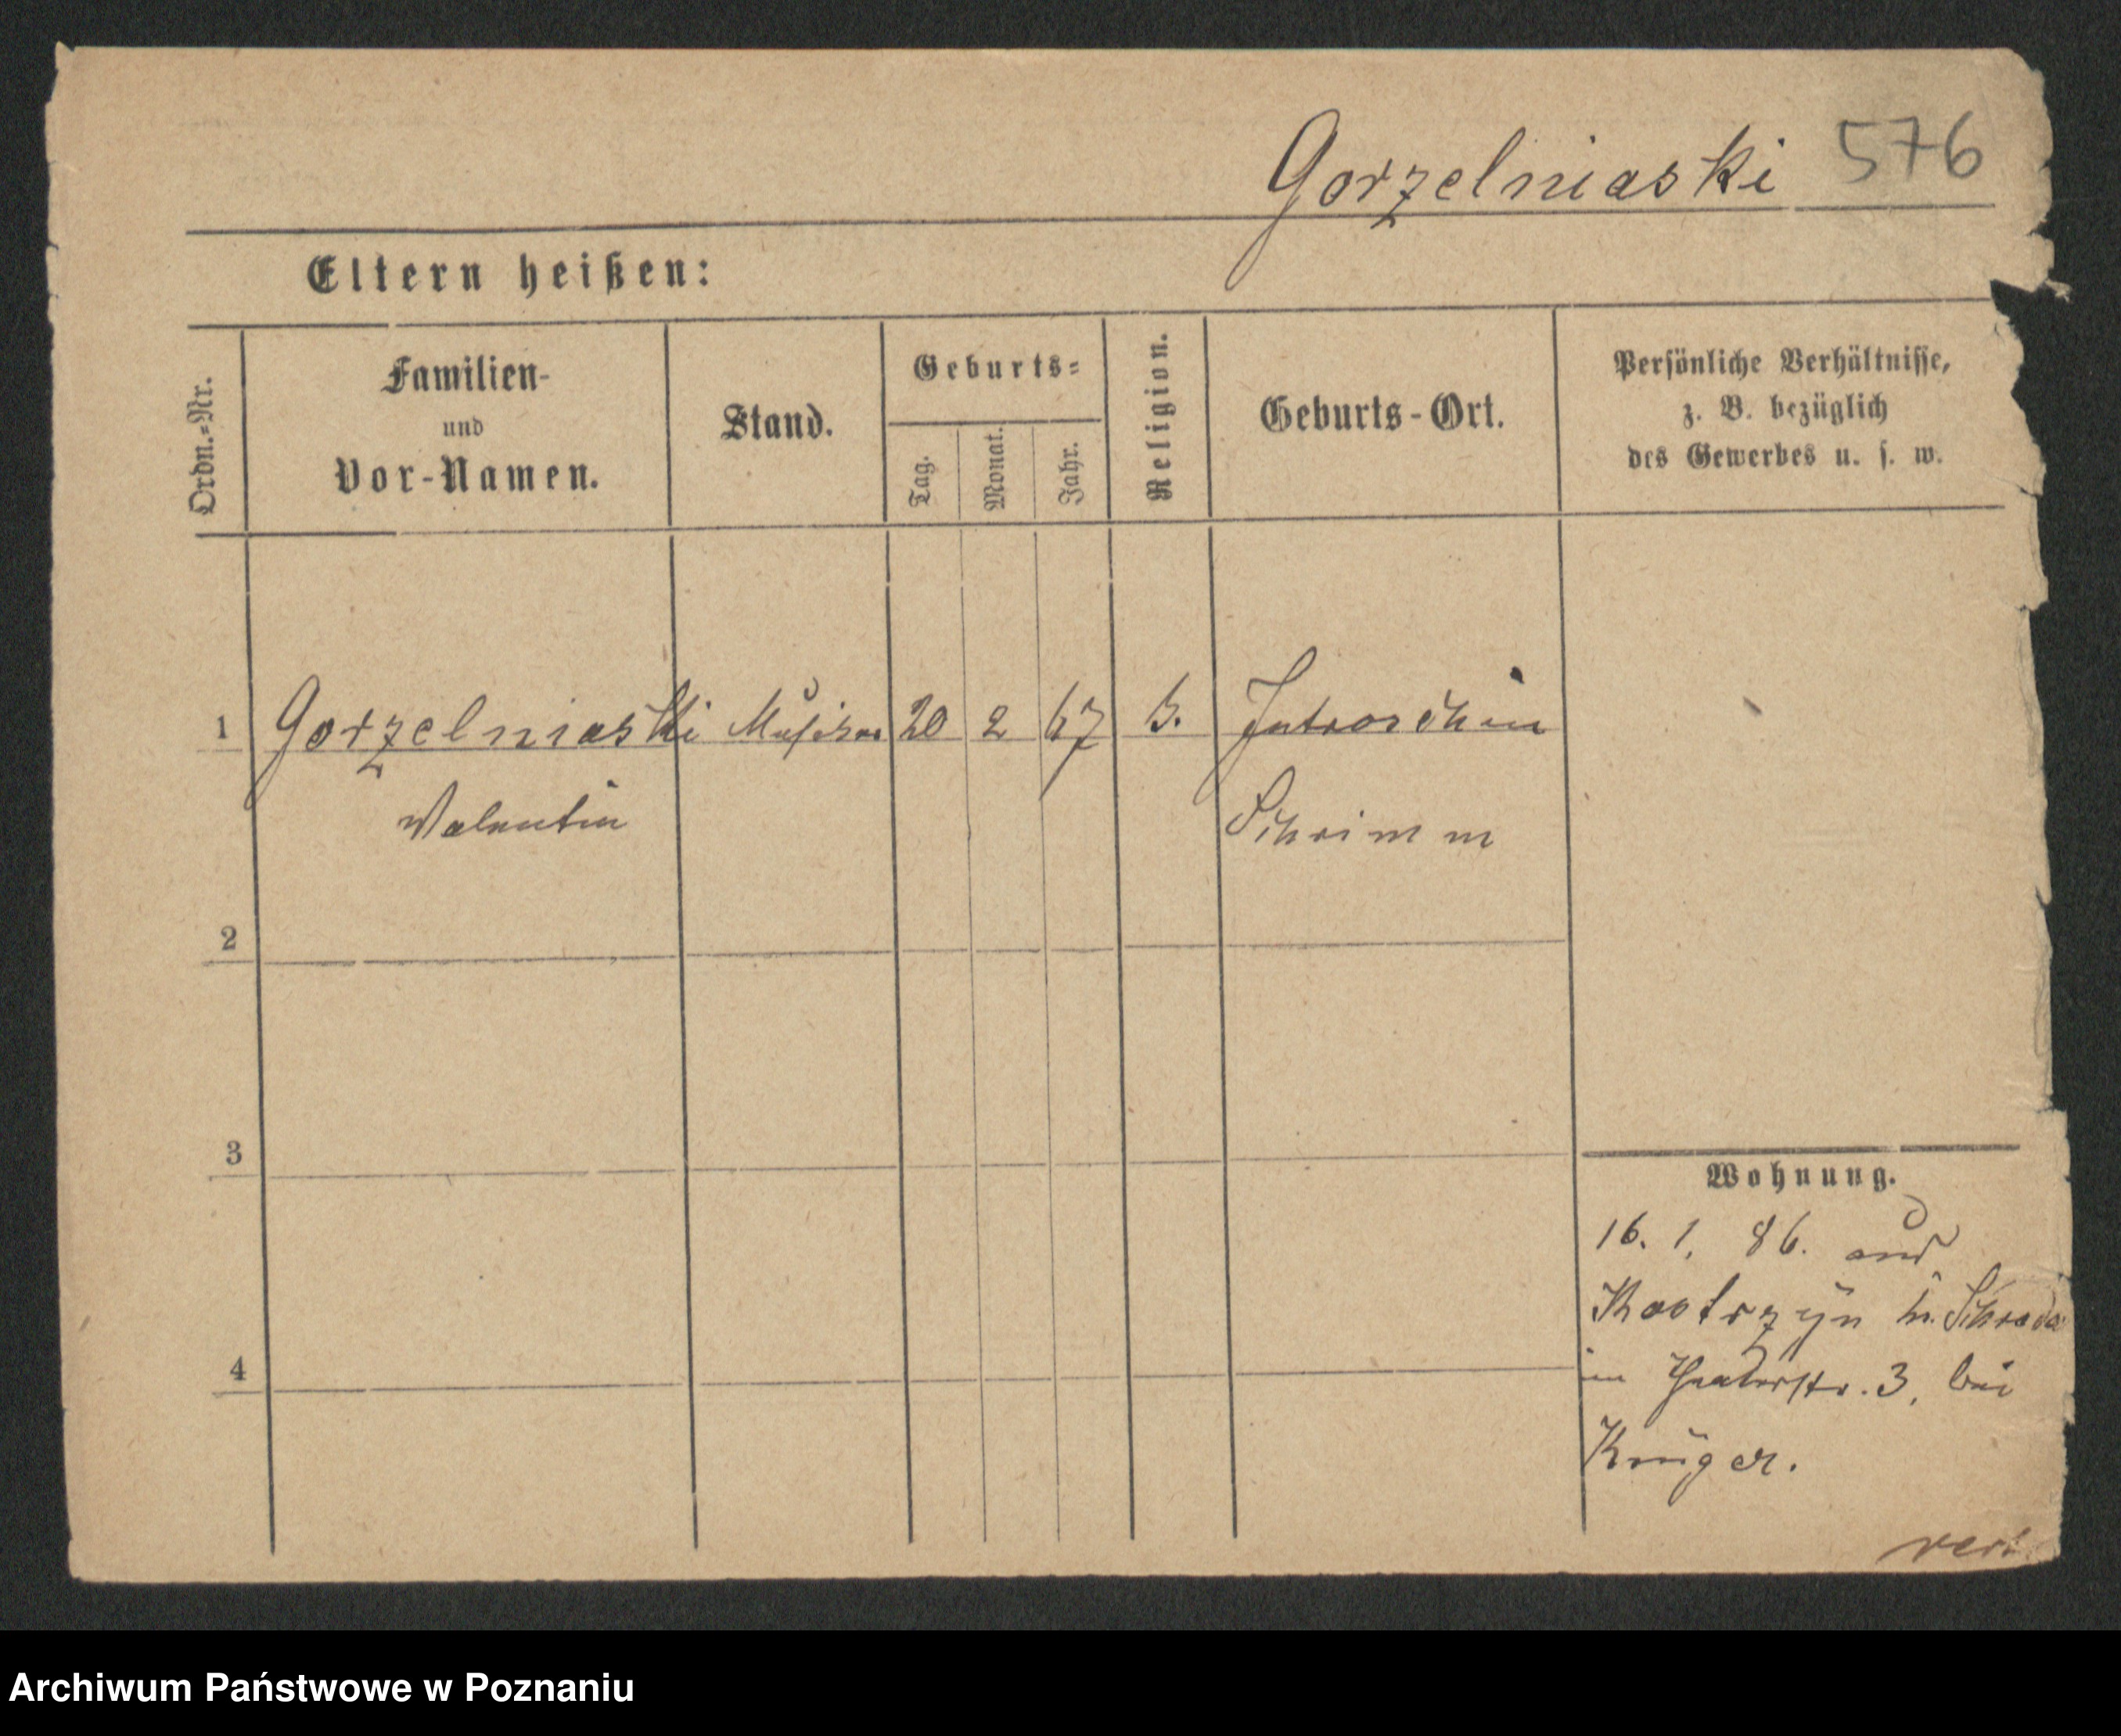 Gorzelniaski 576
Eltern heißen:
Ordn.-Nr.
Familien-
und
Vor-Namen.
Stand.
Geburts-
Tag.
Monat.
Jahr.
Religion.
Geburts-Ort.
Persönliche Verhältnisse,
z. B. bezüglich
des Gewerbes u. s. w.
1 Gorzelniaski Musiker 20 2 67 Jutroschin
Valentin Schrimm
2
3
4
Wohnung.
16. 1. 86. aus
Kostrzyn Schroda
in Theaterstr. 3, bei
Krüger.
Archiwum Państwowe w Poznaniu